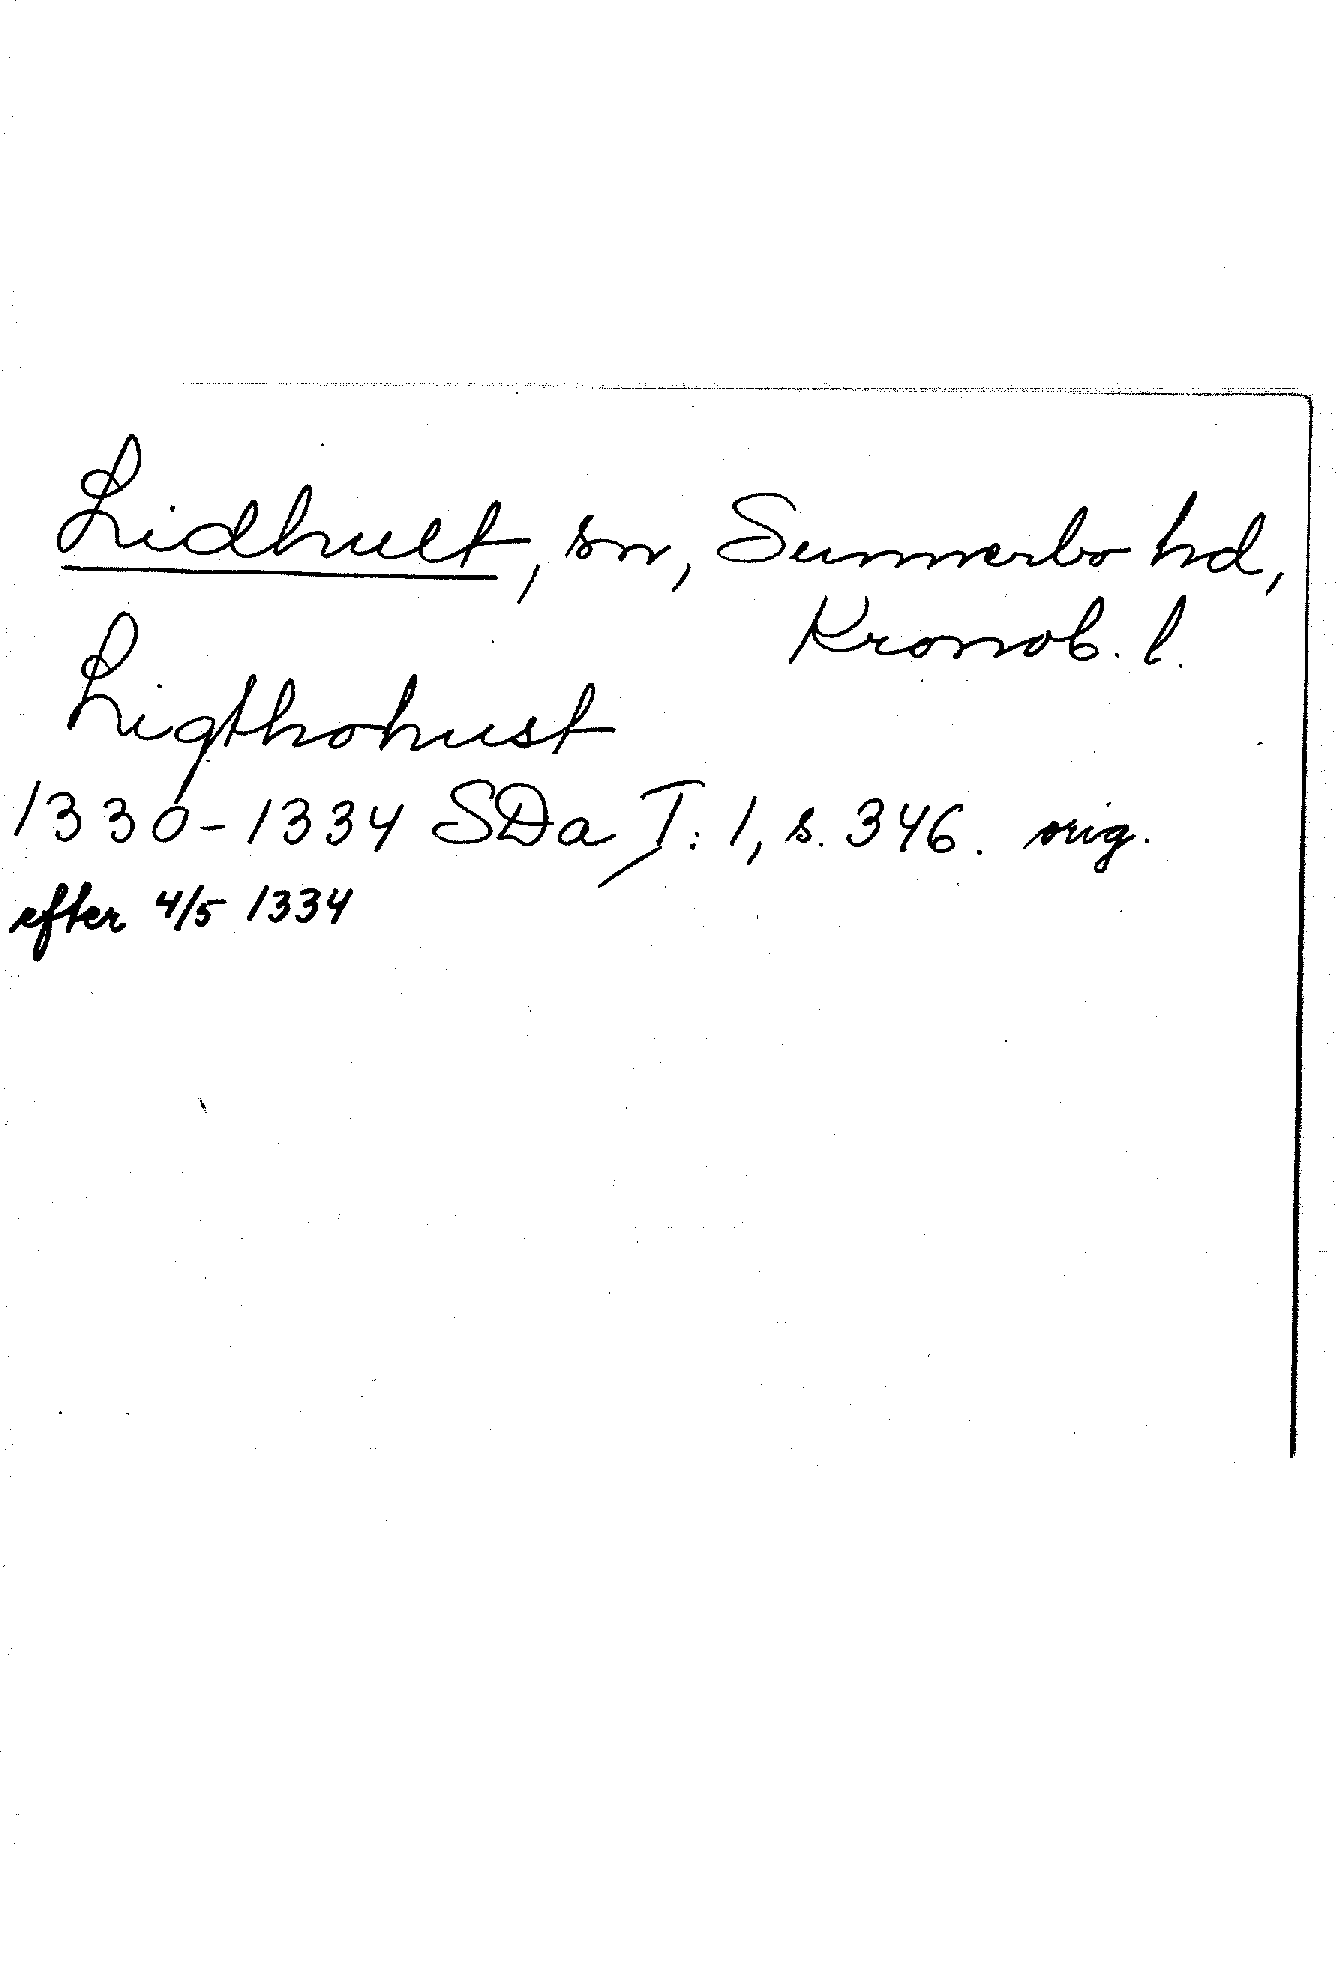 Lidhult, sn, Sunnerbo hd,
Kronob. l.
Ligthohust
1330-1334 SDa I: 1, s. 346. orig.
efter 4/5 1334